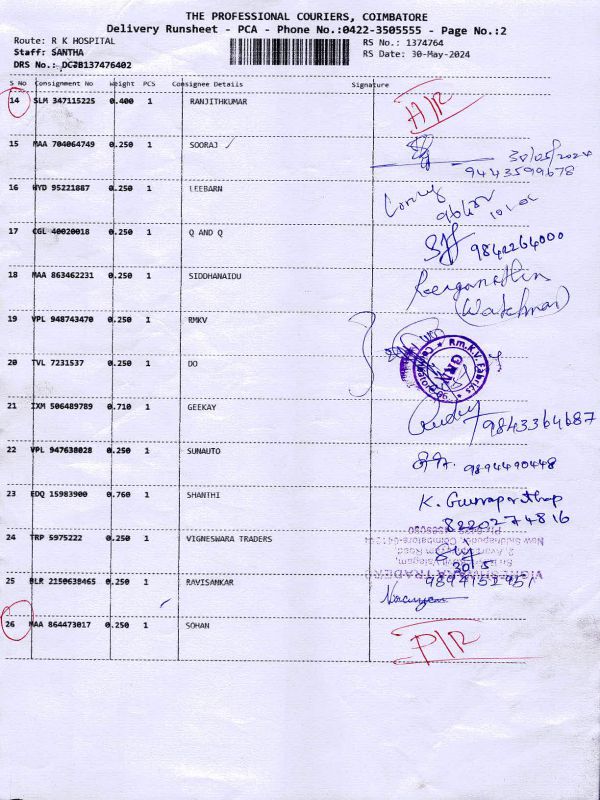 THE PROFESSIONAL COURIERS, COIMBATORE
Delivery Runsheet - PCA - Phone No.:0422-3505555 - Page No.:2
Route: R K HOSPITAL RS No.: 1374764
Staff: SANTHA RS Date: 30-May-2024
DRS No.: DCJB137476402
S No Consignment No Weight PCS Consignee Details Signature
14 SLM 347115225 0.400 1 RANJITHKUMAR
15 MAA 704064749 0.250 1 SOORAJ 30/05/2024
9443599678
16 HYD 95221887 0.250 1 LEEBARN
17 CGL 40020018 0.250 1 Q AND Q 9842264000
18 MAA 863462231 0.250 1 SIDDHANAIDU
(Watchman)
19 VPL 948743470 0.250 1 RMKV
R.m.K.V. Fabrics
GRN
20 TVL 7231537 0.250 1 DO
21 IXM 506489789 0.710 1 GEEKAY 9843364687
22 VPL 947638028 0.250 1 SUNAUTO 9894490448
23 EDQ 15983900 0.760 1 SHANTHI K. Gururaprathap
8220274816
24 TRP 5975222 0.250 1 VIGNESWARA TRADERS
30/5
25 BLR 2150638465 0.250 1 RAVISANKAR 9894152951
26 MAA 864473017 0.250 1 SOHAN P/R